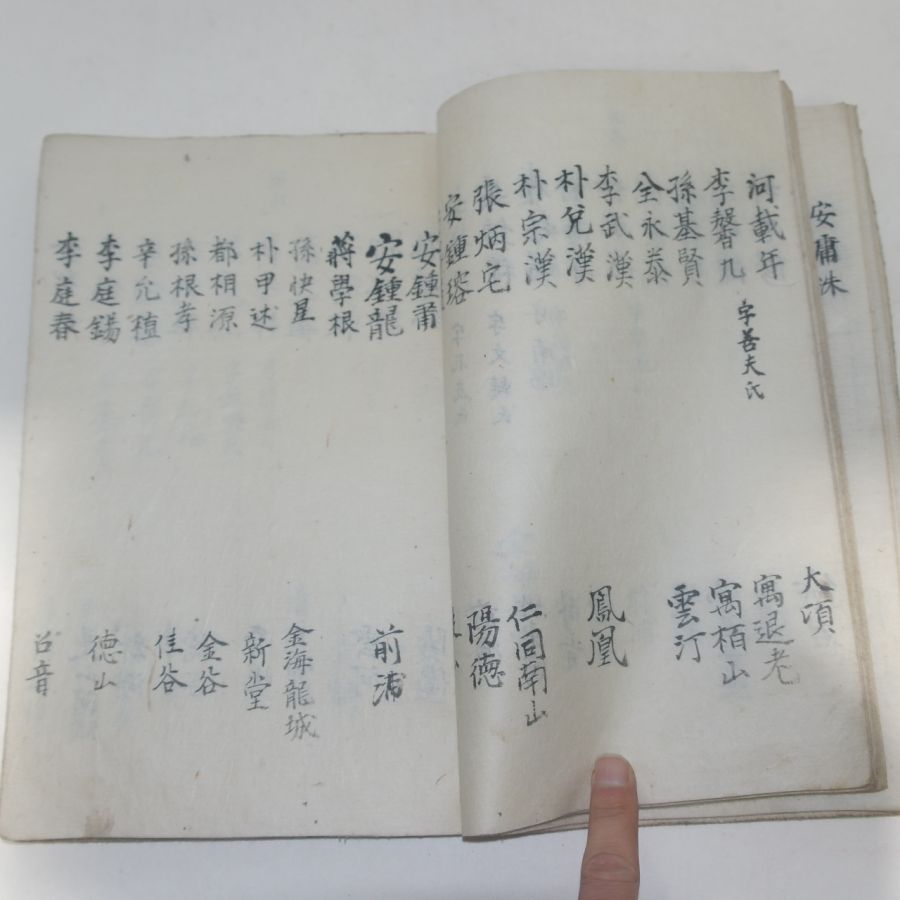 安庸洙
大項
河載年 寓退老
李馨九 字善夫氏 寓栢山
孫基賢 雲汀
全永泰
李武漢 鳳凰
朴兌漢
朴宗漢 仁同南山
張炳宅 陽德
安鍾瑢
安鍾蕭
安鍾龍 前浦
蔣學根
孫快星 金海龍城
朴甲述 新堂
都相源 金谷
孫根孝 佳谷
辛允植
李庭錫 德山
李庭春 召音